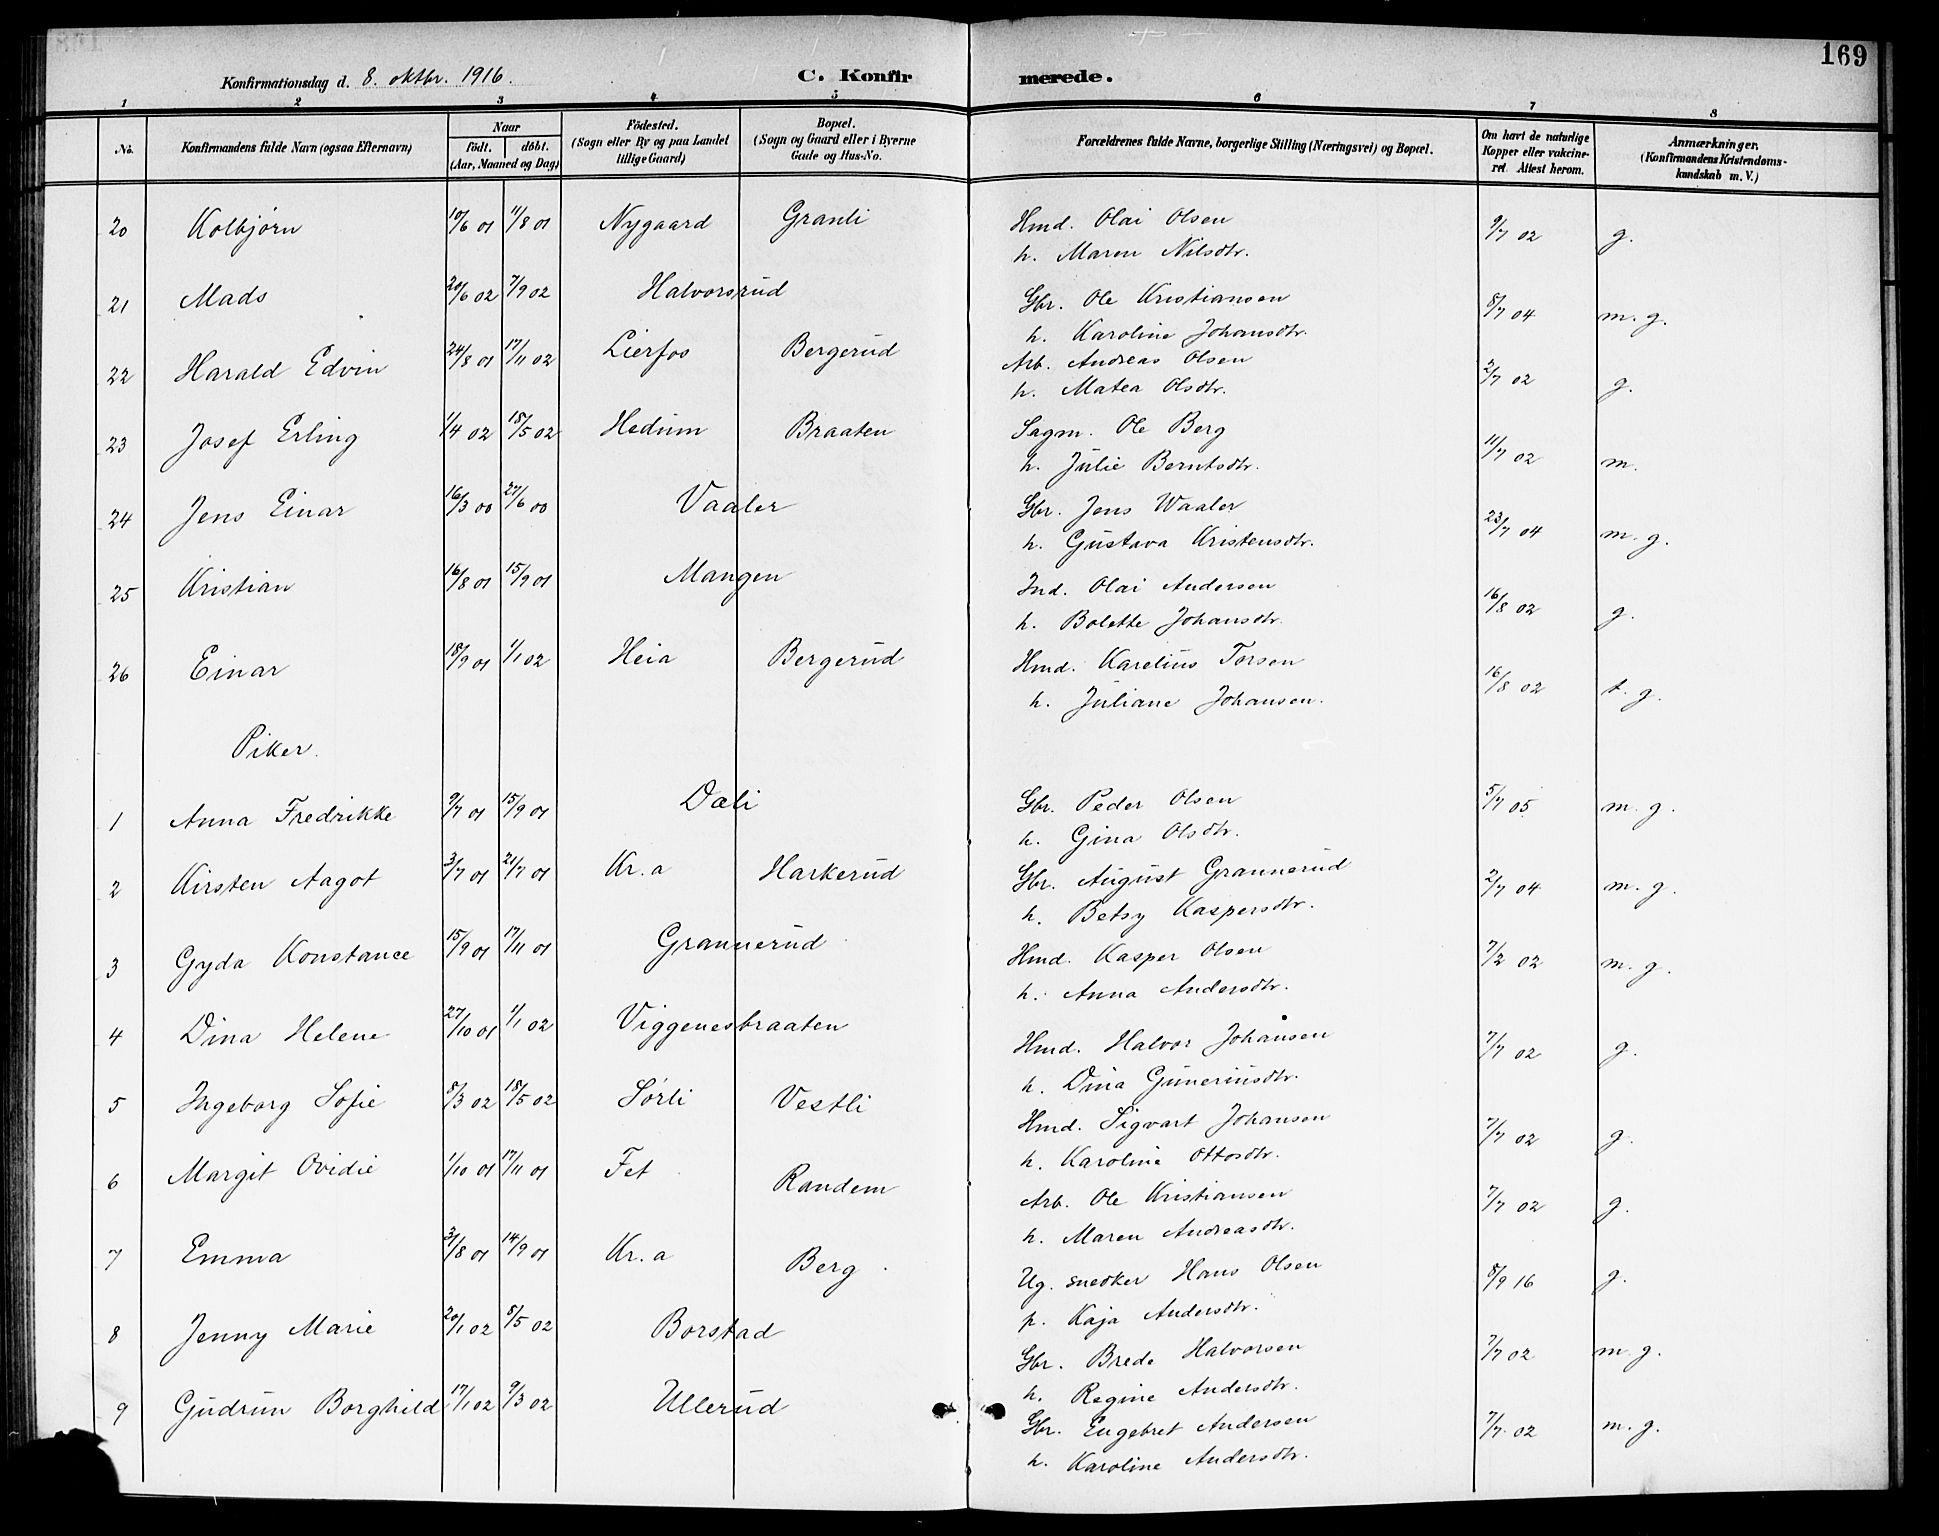 169
Konfirmationsdag d. 8. oktbr. 1916.
C. Konfirmerede.
1 2 3 4 5 6 7 8
No. Konfirmandens fulde Navn (ogsaa Efternavn) Naar födt. döbt. (Aar, Maaned og Dag) Födested. (Sogn eller By og paa Landet tillige Gaard) Bopæl. (Sogn og Gaard eller i Byerne Gade og Hus-No. Forældrenes fulde Navne, borgerlige Stilling (Næringsvei) og Bopæl. Om havt de naturlige Kopper eller vakcineret. Attest herom. Anmærkninger. (Konfirmandens Kristendomskundskab m. V.)
20 Kolbjørn 10/6 01 11/8 01 Nygaard Granli Hmd. Olai Olsen 9/7 02 g.
h. Maren Nilsdtr.
21 Mads 20/6 02 7/9 02 Halvorsrud Gbr. Ole Kristiansen 8/7 04 m. g.
h. Karoline Johansdtr.
22 Harald Edvin 24/8 01 17/11 02 Lierfos Bergerud Arb. Andreas Olsen 2/7 02 g.
h. Matea Olsdtr.
23 Josef Erling 1/4 02 18/5 02 Hedum Braaten Sagm. Ole Berg 11/7 02 m.
h. Julie Berntsdtr.
24 Jens Einar 16/3 00 27/6 00 Vaaler Gbr. Jens Waaler 23/7 04 m. g.
h. Gustava Kristensdtr.
25 Kristian 16/8 01 15/9 01 Mangen Ind. Olai Andersen 16/8 02 g.
h. Bolette Johansdtr.
26 Einar 18/9 01 1/1 02 Heia Bergerud Hmd. Karelius Torsen 16/8 02 t. g.
h. Juliane Johansen.
Piker.
1 Anna Fredrikke 9/7 01 15/9 01 Dali Gbr. Peder Olsen 5/7 05 m. g.
h. Gina Olsdtr.
2 Kirsten Aagot 3/7 01 21/7 01 Kr.a Harkerud Gbr. August Grannerud 2/7 04 m. g.
h. Betsy Kaspersdtr.
3 Gyda Konstance 15/9 01 17/11 01 Grannerud Hmd. Kasper Olsen 7/2 02 m. g.
h. Anna Andersdtr.
4 Dina Helene 27/10 01 1/1 02 Viggenesbraaten Hmd. Halvor Johansen 7/7 02 g.
h. Dina Guneriusdtr.
5 Ingeborg Sofie 8/3 02 18/5 02 Sørli Vestli Hmd. Sigvart Johansen 7/7 02 g.
h. Karoline Ottosdtr.
6 Margit Ovidie 1/10 01 17/11 01 Fet Randem Arb. Ole Kristiansen 7/7 02 g.
h. Maren Andreasdtr.
7 Emma 31/8 01 14/9 01 Kr.a Berg Ug. snedker Hans Olsen 8/9 16 g.
p. Kaja Andersdtr.
8 Jenny Marie 20/1 02 8/5 02 Borstad Gbr. Brede Halvorsen 7/7 02 m. g.
h. Regine Andersdtr.
9 Gudrun Borghild 17/1 02 9/3 02 Ullerud Gbr. Engebret Andersen 7/7 02 m. g.
h. Karoline Andersdtr.